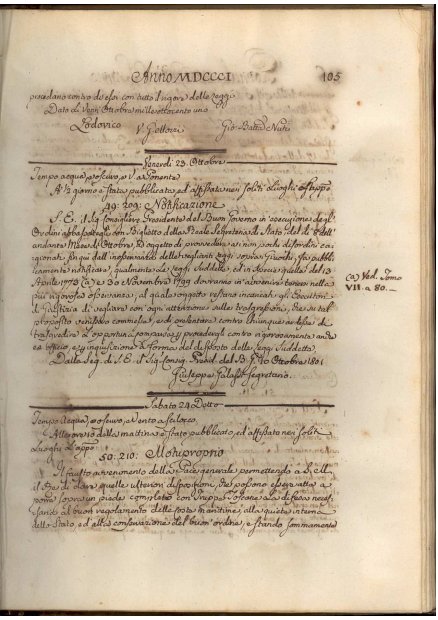 Anno MDCCCI
105
procedano contro di essi con tutto il rigore delle Leggi
Dato di Venti Ottobre mille ottocento uno
Lodovico V.
Venerdi 23. Ottobre
Tempo acqua, e a Ponente
A ½ giorno è stata pubblicata, ed affissata nei soliti Luoghi
49: 209: Notificazione
S. E. il Sig. Consigliere Presidente del Buon Governo in esecuzione degl'
Ordini abbassategli con Biglietto della Reale Segreteria di Stato del dì
andante Mese di Ottobre, ad oggetto di provvedere ai non pochi disordini ca-
gionati fin qui dall'inosservanza delle veglianti Leggi sopra i Giuochi, fa pubbli-
camente notificare, qualmente le Leggi suddette, ed in specie quelle del 13
Aprile 1773 (a) e 30 Novembre 1799 dovranno in avvenire tenersi nella
più rigorosa osservanza, al quale oggetto restano incaricati gli Esecutori
di Giustizia di vegliare con ogni attenzione sulle trasgressioni, che su tal
proposito venissero commesse, e di chiunque
trasgredire rigorosamente anche
ex officio, e per inquisizione a forma del disposto delle Leggi Suddette.
Dalla Seg. di S. E. il Sig. Consig. Presid. del B. G. 20 Ottobre 1801
Giuseppe Segretario.
(a) Ved. Tomo
VII. a 80. —
Sabato 24 Detto
Tempo Acqua, e Vento a Scilocco
della mattina è stato pubblicato, ed affissato nei soliti
Luoghi
50: 210: Motuproprio
Il fausto avvenimento della Pace generale permettendo a S. M.
il Re di dare quelle ulteriori disposizioni, che possono essere atte a
porre sopra un piede completo la Truppa Toscana La di cui neces-
sario al buon regolamento delle coste marittime, alla quiete interna
dello Stato, ed alla conservazione del buon ordine, e stando sommamente